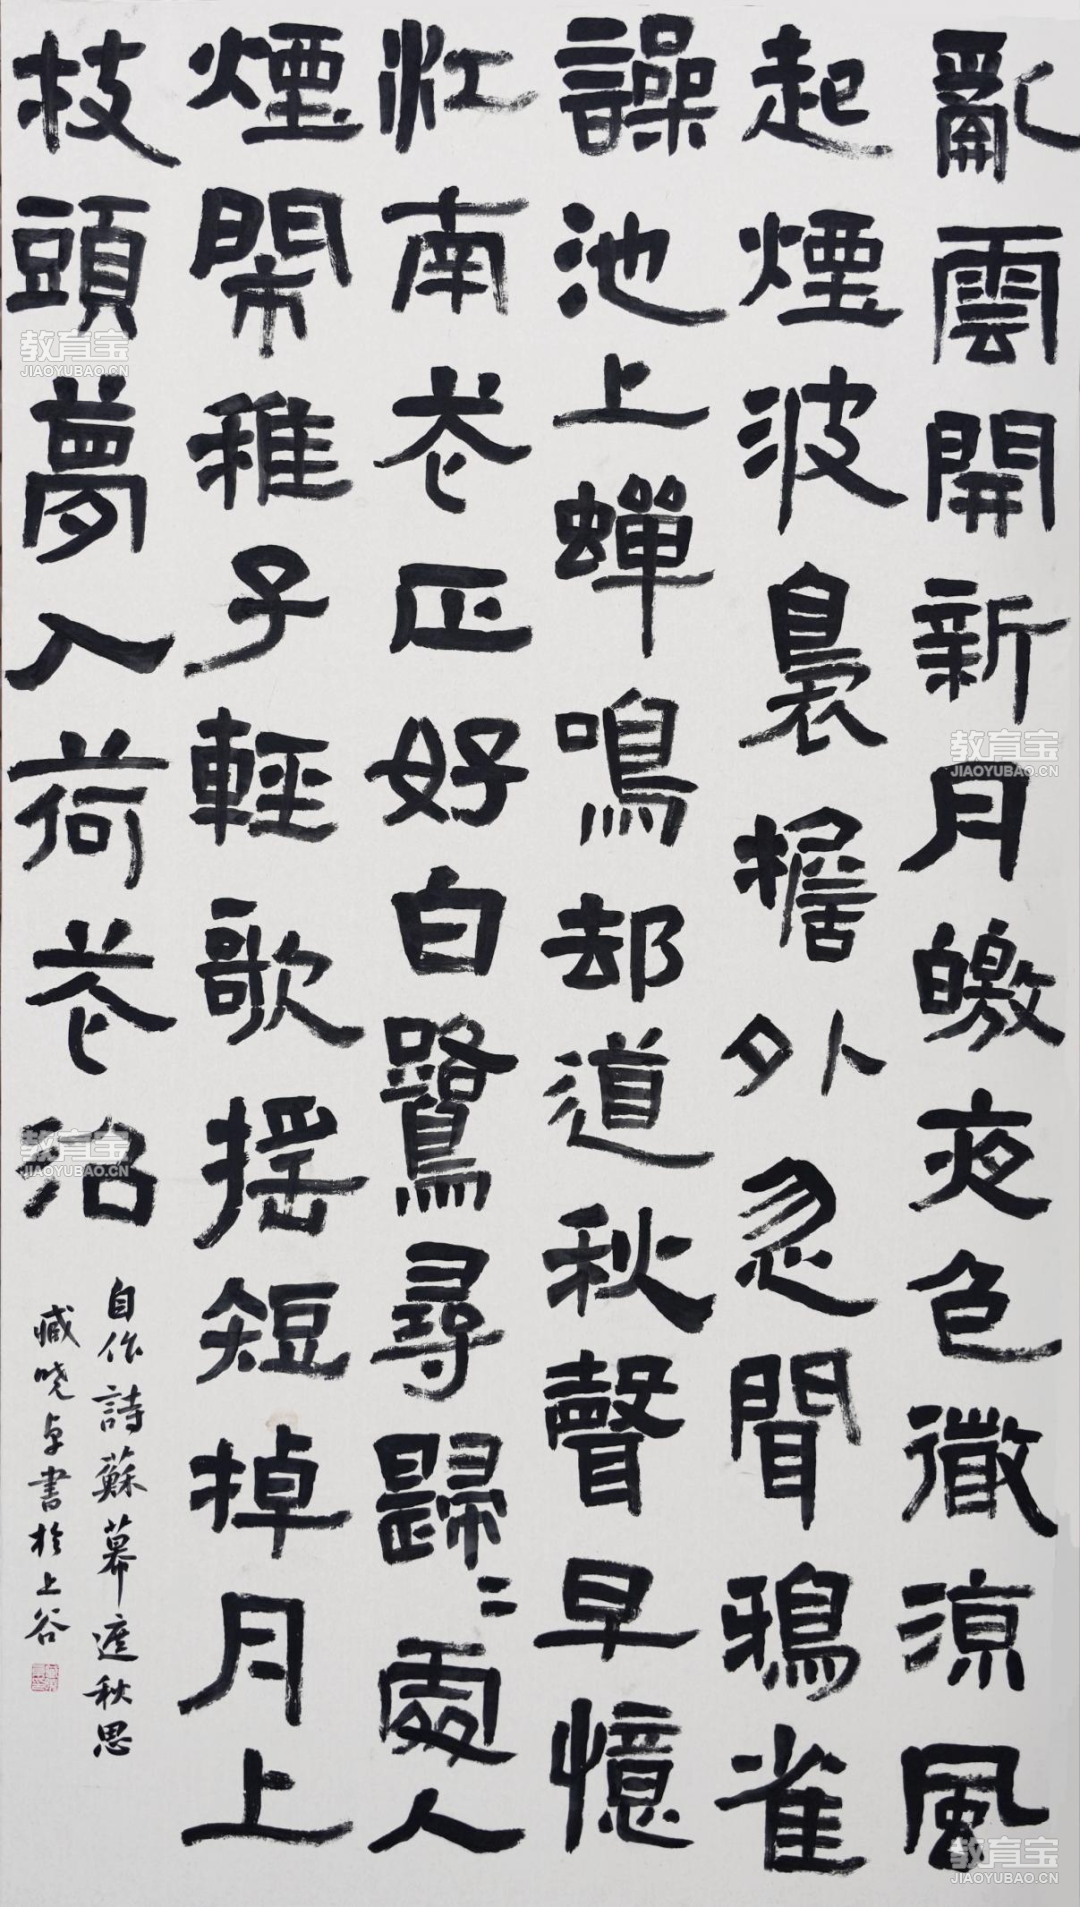 亂雲開新月皦夜色微涼風
起煙波裊檐外忽聞鴉雀
譟池上蟬鳴却道秋聲早憶
江南花正好白鷺尋歸〻處人
煙閙稚子輕歌搖短棹月上
枝頭夢入荷花沼
自作詩蘇幕遮秋思
臧曉卓書於上谷
教育宝
JIAOYUBAO.CN
教育宝
JIAOYUBAO.CN
教育宝
JIAOYUBAO.CN
教育宝
JIAOYUBAO.CN